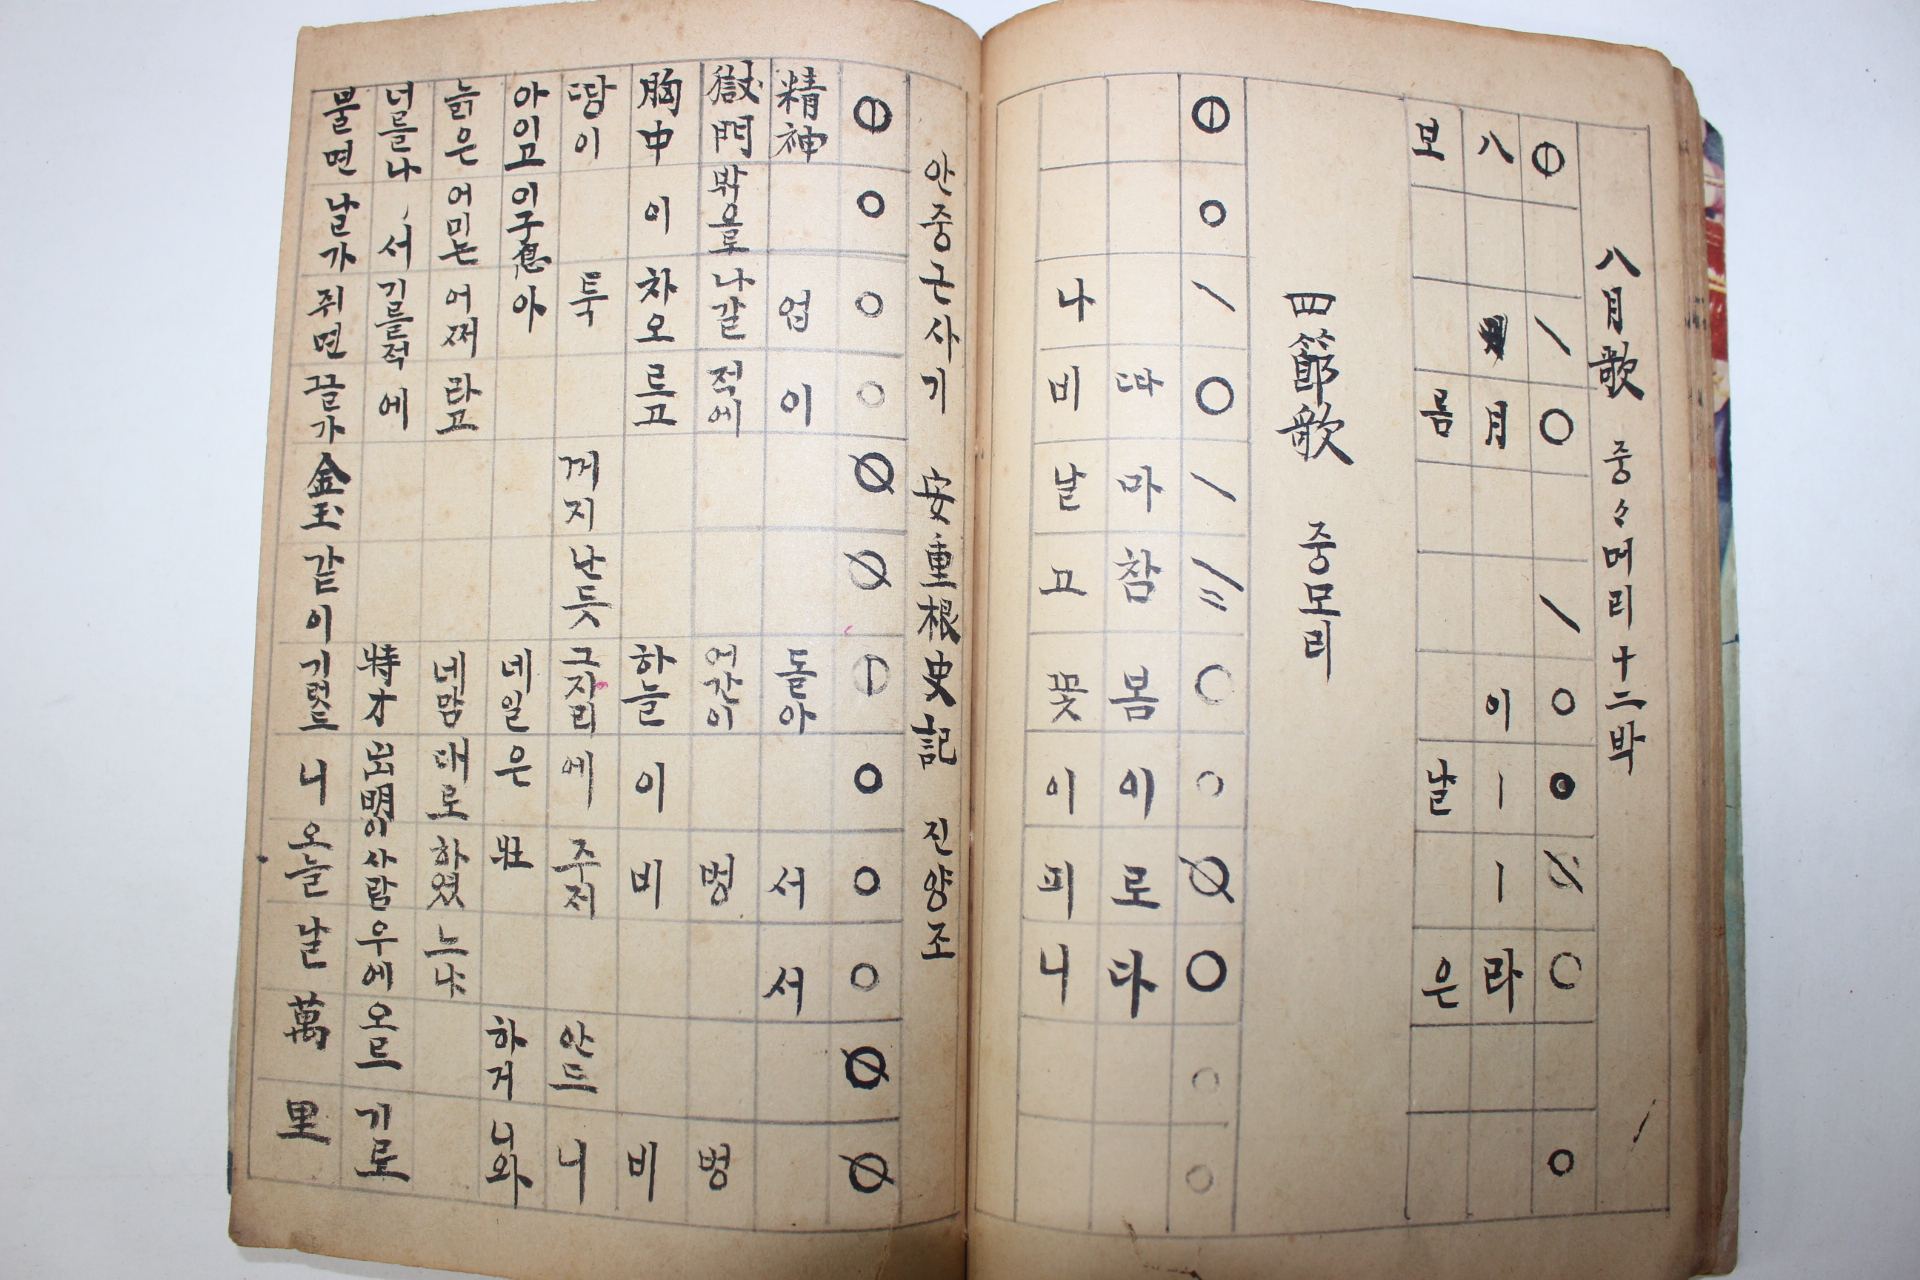 八月歌 중々머리 十二박
八月이ㅣㅣ라
보름날은
四節歌 중모리
따마참봄이로다
나비날고꽃이피니
안중근사기 安重根史記 진양조
精神업이돌아서서
獄門밖으로나갈적에어간이벙벙
胸中이차오르고하늘이비비
땅이툭꺼지난듯그자리에주저안드니
아이고이구 아네일은壯하거니와
늙은어미는어쩌라고네맘대로하였느냐
너를나서기를적에特才出明이사람우에오르기로
불면날가쥐면끌가金玉같이기럿드니오늘날萬里